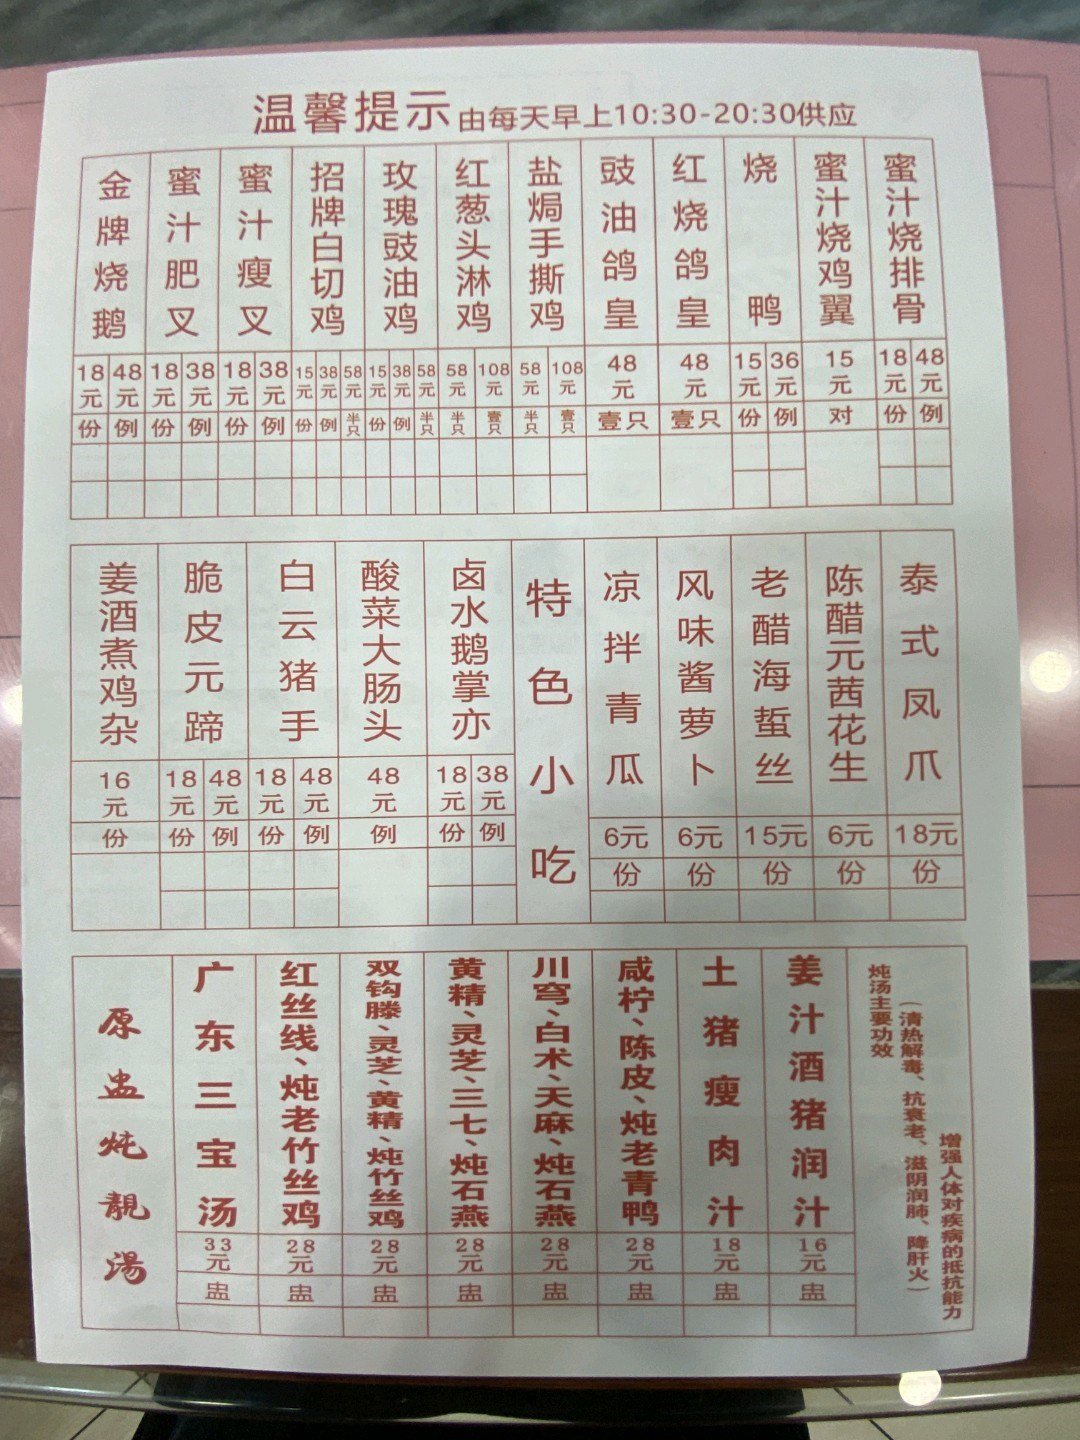 温馨提示 由每天早上10:30-20:30供应
金牌烧鹅
18元 48元
份 例
蜜汁肥叉
18元 38元
份 例
蜜汁瘦叉
18元 38元
份 例
招牌白切鸡
15元 38元 58元
份 例 半只
玫瑰豉油鸡
15元 38元 58元
份 例 半只
红葱头淋鸡
58元 108元
半只 壹只
盐焗手撕鸡
58元 108元
半只 壹只
豉油鸽皇
48元
壹只
红烧鸽皇
48元
壹只
烧鸭
15元 36元
份 例
蜜汁烧鸡翼
15元
对
蜜汁烧排骨
18元 48元
份 例
姜酒煮鸡杂
16元
份
脆皮元蹄
18元 48元
份 例
白云猪手
18元 48元
份 例
酸菜大肠头
48元
例
卤水鹅掌亦
18元 38元
份 例
特色小吃
凉拌青瓜
6元
份
风味酱萝卜
6元
份
老醋海蜇丝
15元
份
陈醋元茜花生
6元
份
泰式凤爪
18元
份
原盅炖靚湯
广东三宝汤
33元
盅
红丝线、炖老竹丝鸡
28元
盅
双钩滕、灵芝、黄精、炖竹丝鸡
28元
盅
黄精、灵芝、三七、炖石燕
28元
盅
川穹、白术、天麻、炖石燕
28元
盅
咸柠、陈皮、炖老青鸭
28元
盅
土猪瘦肉汁
18元
盅
姜汁酒猪润汁
16元
盅
炖汤主要功效
（清热解毒、抗衰老、滋阴润肺、降肝火）
增强人体对疾病的抵抗能力